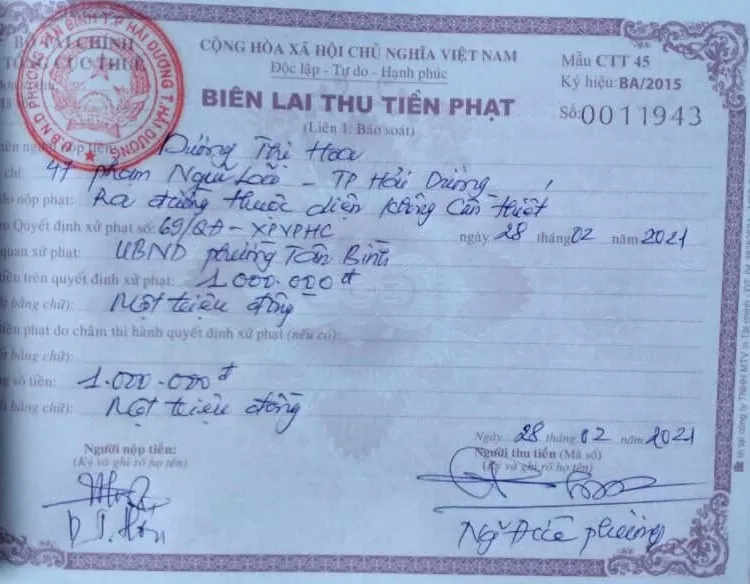 BỘ TÀI CHÍNH
TỔNG CỤC THUẾ
U.B.N.D PHƯỜNG TÂN BÌNH T.P HẢI DƯƠNG T.HẢI DƯƠNG
CỘNG HÒA XÃ HỘI CHỦ NGHĨA VIỆT NAM
Độc lập - Tự do - Hạnh phúc
BIÊN LAI THU TIỀN PHẠT
(Liên 1: Báo soát)
Mẫu CTT 45
Ký hiệu: BA/2015
Số: 0011943
tên người nộp tiền: Dương Thị Hoa
chỉ: 47 Phạm Ngũ Lão - TP Hải Dương
do nộp phạt: Ra đường thuộc diện không cần thiết
o Quyết định xử phạt số: 69/QĐ-XPVPHC ngày 28 tháng 02 năm 2021
quan xử phạt: UBND phường Tân Bình
tiền trên quyết định xử phạt: 1.000.000đ
t bằng chữ): Một triệu đồng
tiền phạt do chậm thi hành quyết định xử phạt (nếu có):
t bằng chữ):
g số tiền: 1.000.000đ
t bằng chữ): Một triệu đồng
Ngày 28 tháng 02 năm 2021
Người nộp tiền:
(Ký và ghi rõ họ tên)
Người thu tiền (Mã số)
(Ký và ghi rõ họ tên)